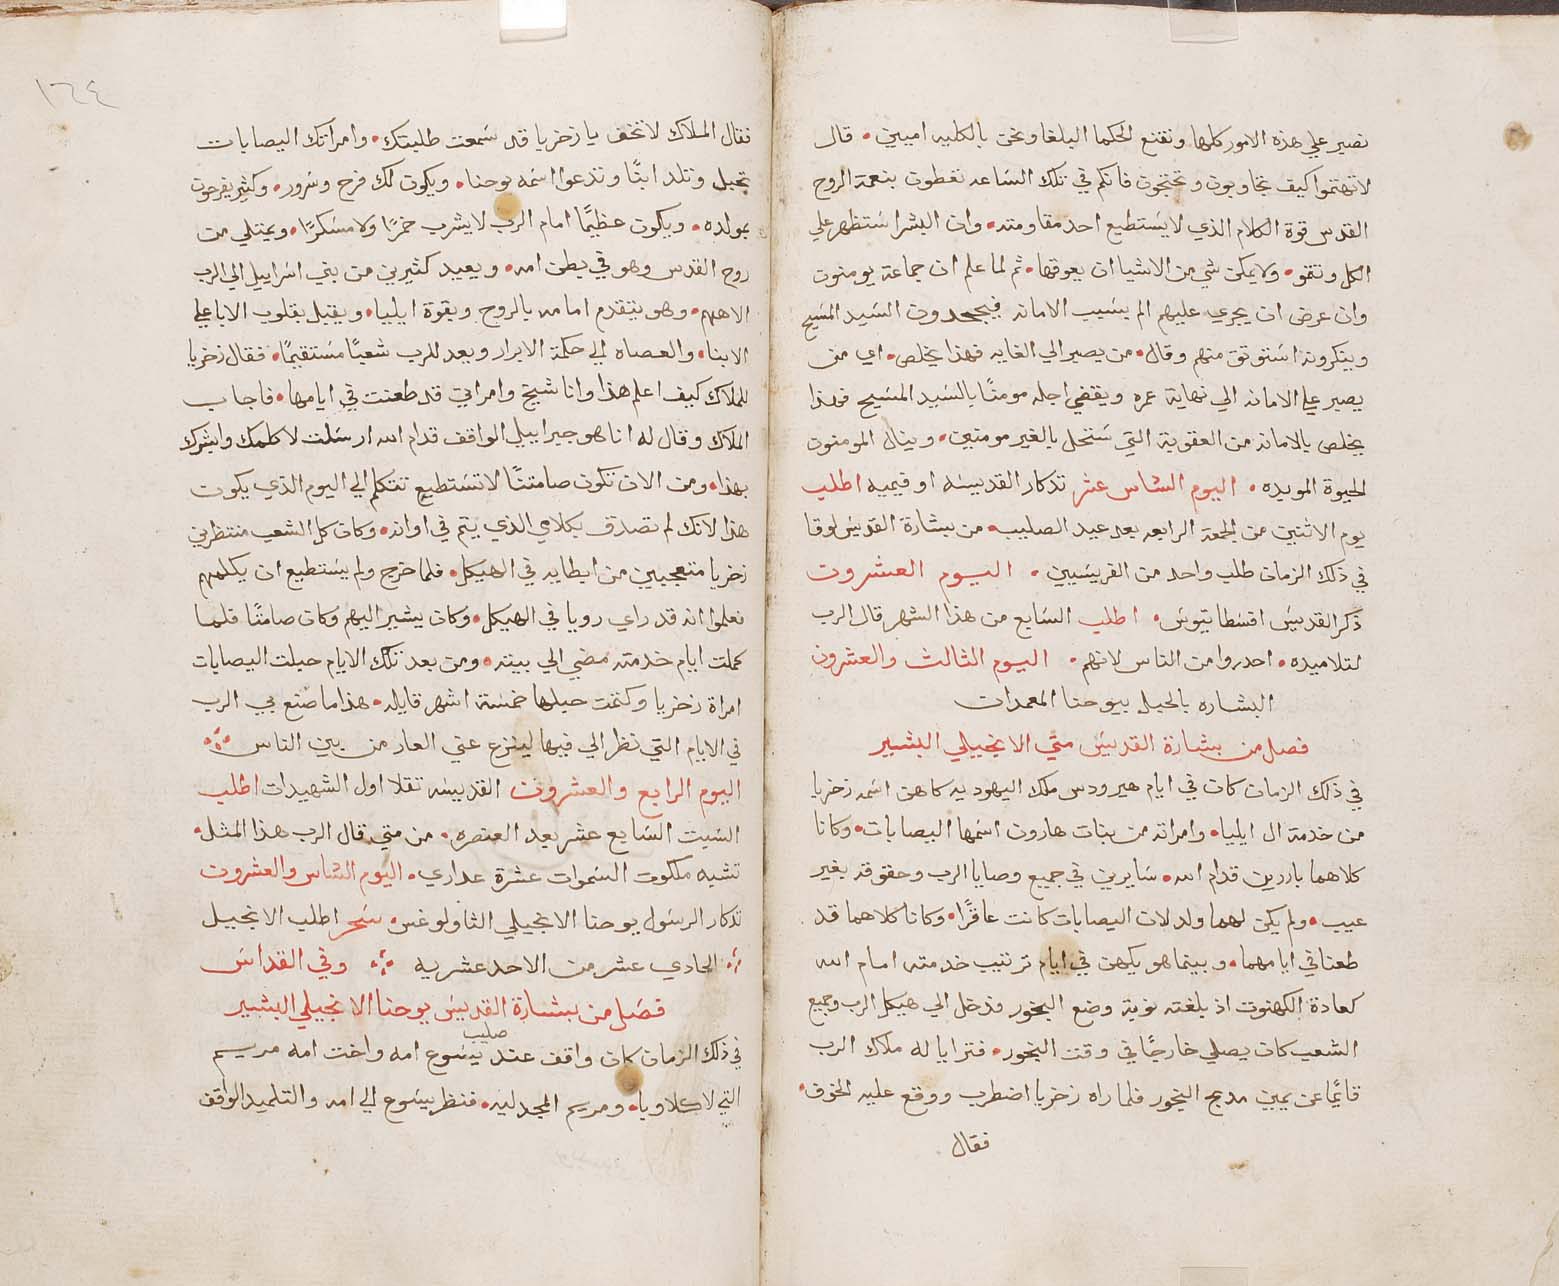 نصير علي هذه الامور كلها ونقنع الحكما البلغا ونحن بالكليه اميين • قال
لا تهتموا كيف تجاوبون وتحتجون فانكم في تلك الساعه تعطون بنعمة الروح
القدس قوة الكلام الذي لا يستطيع احد مقاومته • وان البشر استظهر علي
الكل وتقو • ولا يمكن شي من الاشيا ان يعوقها • ثم لما علم ان جماعة يومنون
وان عرض ان يجري عليهم الم بسبب الامانه فيجحدون السيد المسيح
وينكرونه استوثق منهم وقال • من يصبر الي الغايه فهذا يخلص • اي من
يصبر علي الامانه الي نهاية عمره ويقضي اجله مومنًا بالسيد المسيح فهذا
يخلص بالامانه من العقوبة التي ستحل بالغير مومنين • وينال المومنون
الحيوة الموبده • اليوم الثامن عشر تذكار القديسه اوفيميه اطلب
يوم الاثنين من الجمعة الرابعه بعد عيد الصليب • من بشارة القديس لوقا
في ذلك الزمان طلب واحد من الفريسيين • اليوم العشرون
ذكر القديس افسطاتيوس • اطلب السابع من هذا الشهر قال الرب
لتلاميذه • احدروا من الناس لانهم • اليوم الثالث والعشرون
البشاره بالحبل بيوحنا المعمدان
فصل من بشارة القديس متي الانجيلي البشير
في ذلك الزمان كان في ايام هيرودس ملك اليهوديه كاهن اسمه زخريا
من خدمة ال ايليا • وامراته من بنات هارون اسمها اليصابات • وكانا
كلاهما بارين قدام الله • سايرين في جميع وصايا الرب وحقوقه بغير
عيب • ولم يكن لهما ولد لان اليصابات كانت عاقرًا • وكانا كلاهما قد
طعنا في ايامهما • وبينما هو يكهن في ايام ترتيب خدمته امام الله
كعادة الكهنوت اذ بلغته نوبة وضع البخور فدخل الي هيكل الرب وجميع
الشعب كان يصلي خارجًا في وقت البخور • فترايا له ملاك الرب
قايمًا عن يمين مدبح البخور فلما راه زخريا اضطرب ووقع عليه الخوف •
فقال
١٦٤
فقال الملاك لا تخف يا زخريا قد سمعت طلبتك • وامراتك اليصابات
تحبل وتلد ابنًا وتدعوا اسمه يوحنا • ويكون لك فرح وسرور • وكثير يفرحون
بمولده • ويكون عظيمًا امام الرب لا يشرب خمرًا ولا مسكرًا • ويمتلي من
روح القدس وهو في بطن امه • ويعيد كثيرين من بني اسراييل الي الرب
الاههم • وهو يتقدم امامه بالروح وبقوة ايليا • ويقبل بقلوب الابا علي
الابنا • والعصاه الي حكمة الابرار ويعد للرب شعبًا مستقيمًا • فقال زخريا
للملاك كيف اعلم هذا وانا شيخ وامراتي قد طعنت في ايامها • فاجاب
الملاك وقال له انا هو جبراييل الواقف قدام الله ارسلت لاكلمك وابشرك
بهذا • ومن الان تكون صامتًا لا تستطيع تتكلم الي اليوم الذي يكون
هذا لانك لم تصدق بكلامي الذي يتم في اوانه • وكان كل الشعب منتظرين
زخريا متعجبين من ابطايه في الهيكل • فلما خرج ولم يستطيع ان يكلمهم
فعلموا انه قد راي رويا في الهيكل • وكان يشير اليهم وكان صامتًا فلما
كملت ايام خدمته مضي الي بيته • ومن بعد تلك الايام حبلت اليصابات
امراة زخريا وكتمت حبلها خمسة اشهر قايله • هذا ما صنع بي الرب
في الايام التي نظر الي فيها لينزع عني العار من بين الناس
اليوم الرابع والعشرون القديسه تقلا اول الشهيدات اطلب
السبت السابع عشر بعد العنصره • من متي قال الرب هذا المثل •
تشبه ملكوت السموات عشرة عداري • اليوم السادس والعشرون
تذكار الرسول يوحنا الانجيلي الثاولوغس • سحر اطلب الانجيل
الحادي عشر من الاحد عشريه وفي القداس
فصل من بشارة القديس يوحنا الانجيلي البشير
في ذلك الزمان كان واقف عند صليب يسوع امه واخت امه مريم
التي لاكلاوبا • ومريم المجدليه • فنظر يسوع الي امه والتلميذ الواقف